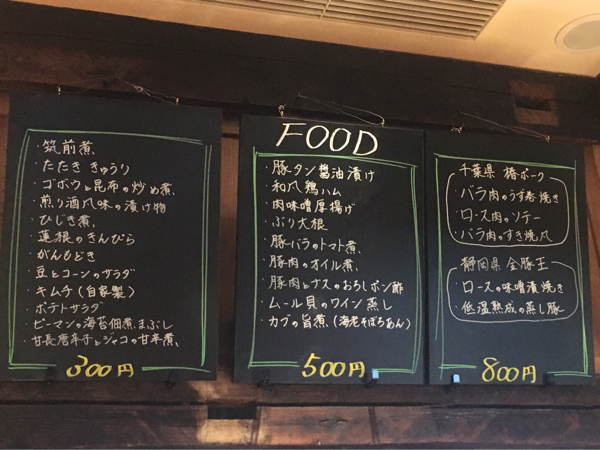 ・筑前煮
・たたき きゅうり
・ゴボウと昆布の炒め煮
・煎り酒風味の漬け物
・ひじき煮
・蓮根のきんぴら
・がんもどき
・豆とコーンのサラダ
・キムチ(自家製)
・ポテトサラダ
・ピーマンの海苔佃煮まぶし
・甘長唐辛子とジャコの甘辛煮
300円
FOOD
・豚タン醤油漬け
・和風鶏ハム
・肉味噌厚揚げ
・ぶり大根
・豚バラのトマト煮
・豚肉のオイル煮
・豚肉とナスのおろしポン酢
・ムール貝のワイン蒸し
・カブの旨煮(海老そぼろあん)
500円
千葉県 椿ポーク
・バラ肉のうす巻焼き
・ロース肉のソテー
・バラ肉のすき焼風
静岡県 金豚王
・ロースの味噌漬焼き
・低温熟成の蒸し豚
800円